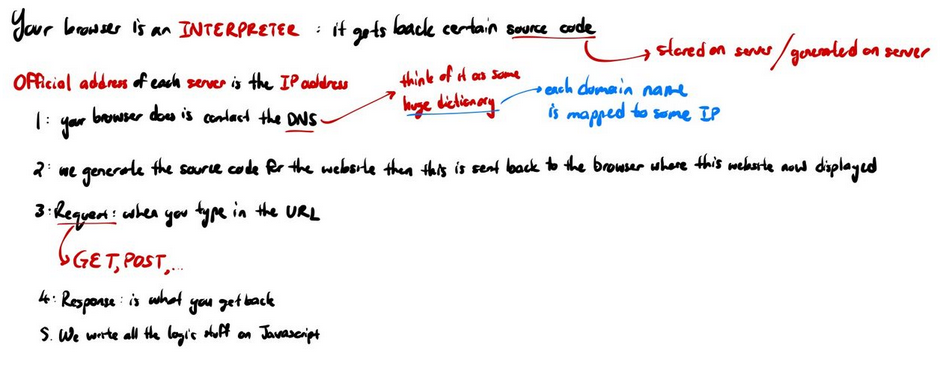 Your browser is an INTERPRETER : it gets back certain source code
stored on server / generated on server
Official address of each server is the IP address
think of it as some
huge dictionary
each domain name
is mapped to some IP
1: your browser does is contact the DNS
2: we generate the source code for the website then this is sent back to the browser where this website now displayed
3: Request: when you type in the URL
GET, POST, ...
4: Response: is what you get back
5. We write all the logic stuff on Javascript